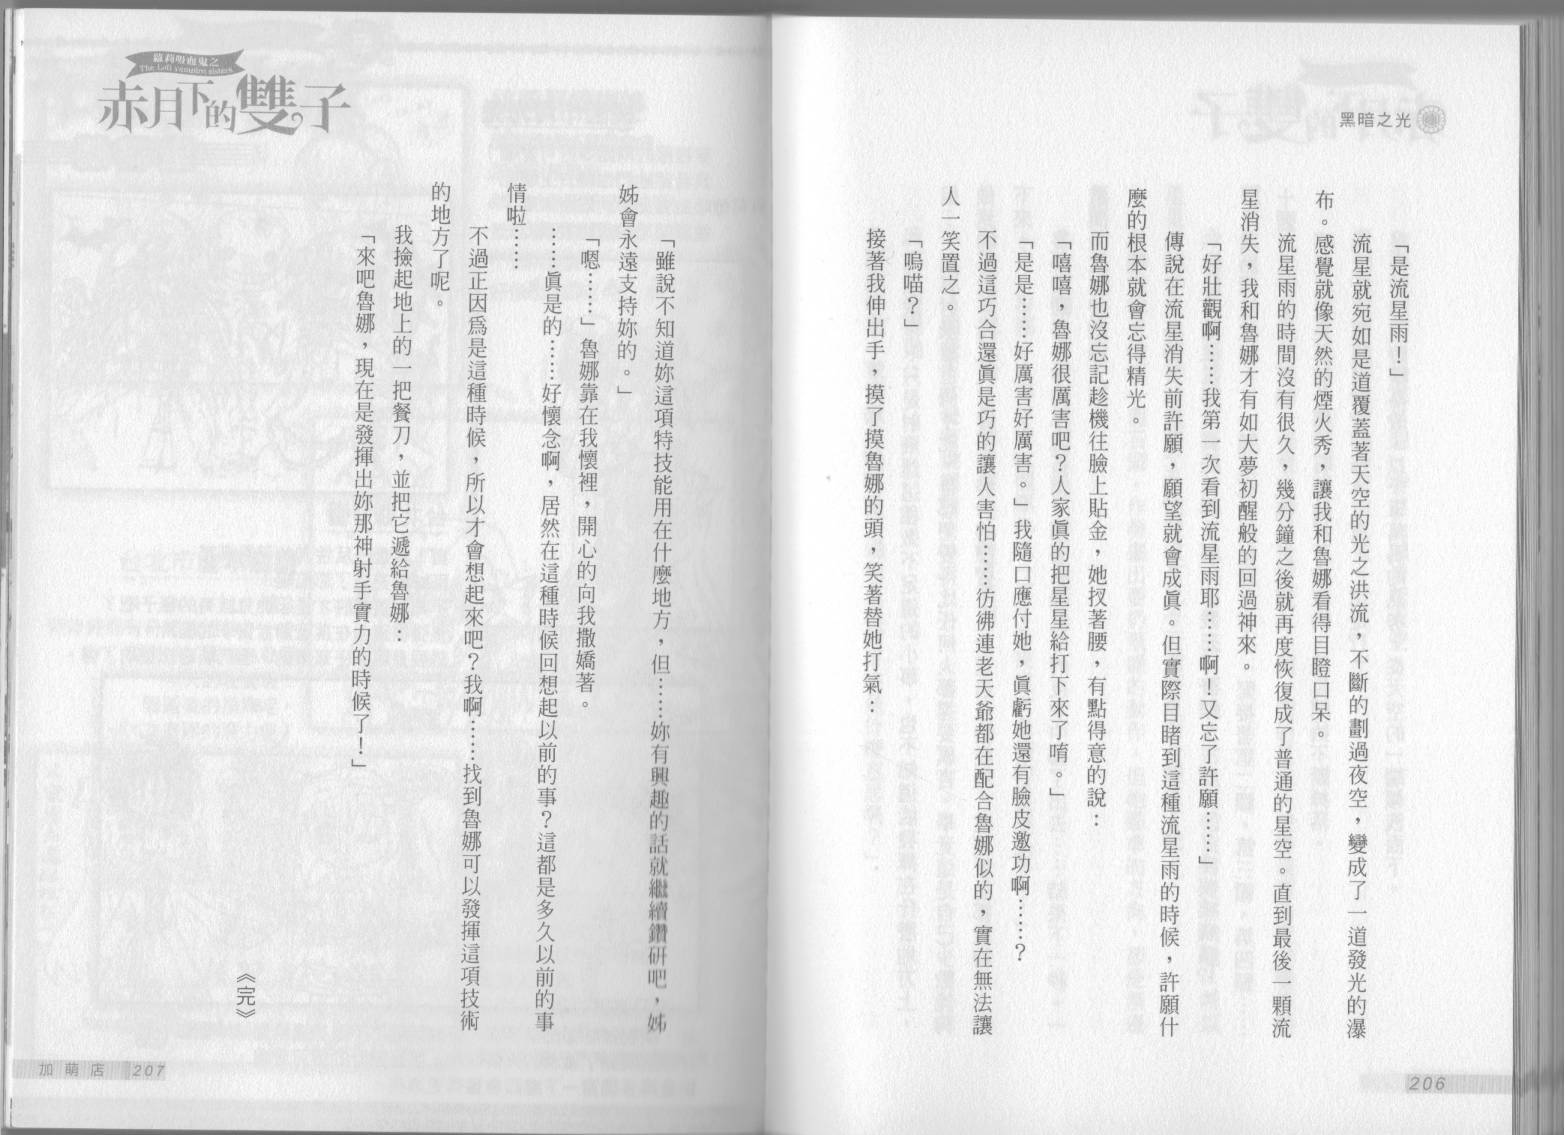 黑暗之光
「是流星雨！」
流星就宛如是道覆蓋著天空的光之洪流，不斷的劃過夜空，變成了一道發光的瀑
布。感覺就像天然的煙火秀，讓我和魯娜看得目瞪口呆。
流星雨的時間沒有很久，幾分鐘之後就再度恢復成了普通的星空。直到最後一顆流
星消失，我和魯娜才有如大夢初醒般的回過神來。
「好壯觀啊……我第一次看到流星雨耶……啊！又忘了許願……」
傳說在流星消失前許願，願望就會成眞。但實際目睹到這種流星雨的時候，許願什
麼的根本就會忘得精光。
而魯娜也沒忘記趁機往臉上貼金，她扠著腰，有點得意的說：
「嘻嘻，魯娜很厲害吧？人家眞的把星星給打下來了唷。」
「是是……好厲害好厲害。」我隨口應付她，眞虧她還有臉皮邀功啊……？
不過這巧合還眞是巧的讓人害怕……彷彿連老天爺都在配合魯娜似的，實在無法讓
人一笑置之。
「嗚喵？」
接著我伸出手，摸了摸魯娜的頭，笑著替她打氣：
206
蘿莉吸血鬼之
The Loli vampire sisters
赤月下的雙子
「雖說不知道妳這項特技能用在什麼地方，但……妳有興趣的話就繼續鑽研吧，姊
姊會永遠支持妳的。」
「嗯……」魯娜靠在我懷裡，開心的向我撒嬌著。
……眞是的……好懷念啊，居然在這種時候回想起以前的事？這都是多久以前的事
情啦……
不過正因爲是這種時候，所以才會想起來吧？我啊……找到魯娜可以發揮這項技術
的地方了呢。
我撿起地上的一把餐刀，並把它遞給魯娜：
「來吧魯娜，現在是發揮出妳那神射手實力的時候了！」
《完》
加萌店 207